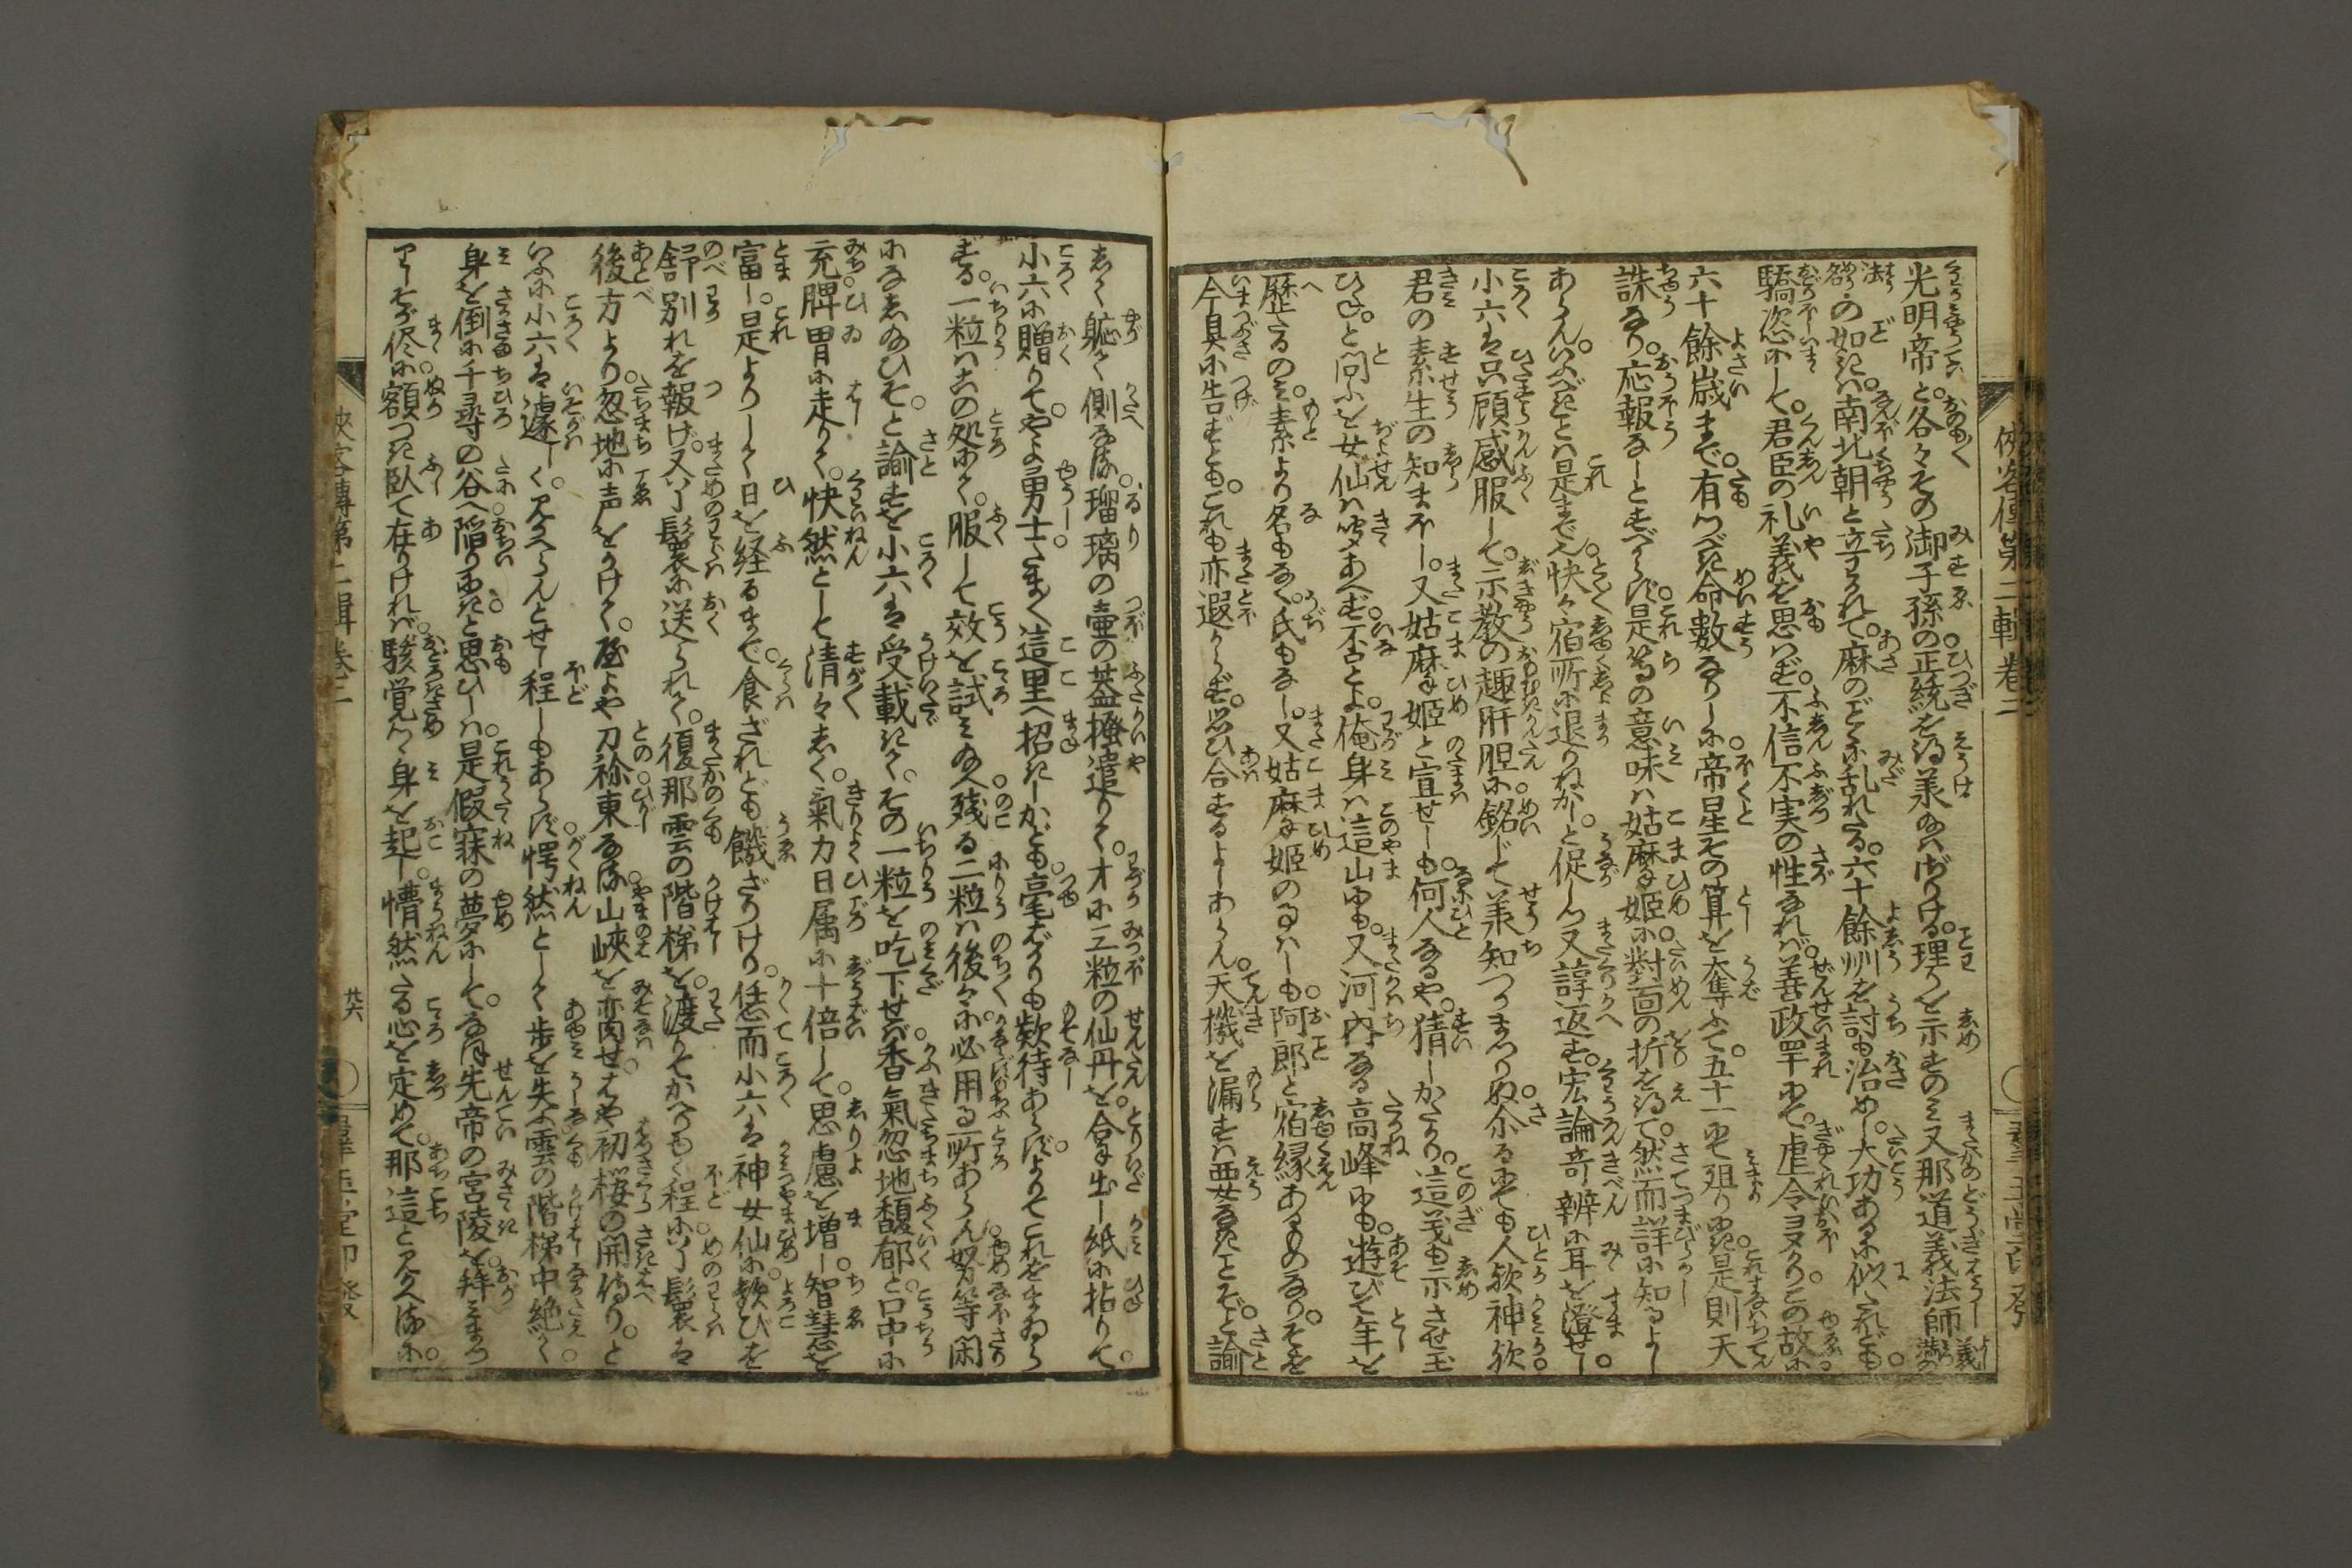 俠客傳第二輯卷二
光明帝と。各々その御子孫の正統を得美給ひ御りける。理りを示すのミ。又那道義法師義満の
法名の如きハ。南北朝と立わかれて。麻のごとく乱れたる。六十餘州を討も治め。大功あるに似たれども。
驕恣にして。君臣の礼義を思ハず。不信不実の性なれバ。善政罕にて。虐令ヨタかりこの故に
六十餘歳まで。有つべき命數なりしに。帝星その算を奪ふて。五十一にて殂りにき。是則天
誅なり。応報なりとすべからず。是等の意味ハ姑麻姫に。對面の折を得て。然而詳に知るよし
あらん。いふべきことハ是まで也。快々宿所に退りねかし。と促しつ又諄返す。宏論奇辨に耳を澄せし
小六ハ只顧感服して。示教の趣肝胆に銘じて美知つかまつりぬ。尓るにても人欤神欤。
君の素生の知まほし。又姑麻姫と宣せしも。何人なるや。猜しかたかり。這義も示させ玉
ひね。と問ふを女仙ハ聞あへず。否とよ。俺身ハ這山にも。又河内なる高峰にも。遊びて年を
歴たるのミ。素より名もなく。氏もなし。又姑麻姫の事ハしも。阿郎と宿縁あるものなり。そを
今具に告ずとも。これも亦遐からず。思ひ合するよしあらん。天機を漏すハ要なきことぞ。と諭
しく軈て側なる。瑠璃の壷の葢掻遣りて。才に三粒の仙丹を。拿出し紙に拈りて。
小六に贈りて。やよ勇士。たまたま這里へ招きしかども。毫ばかりも欵待あらず。よりてこれをまゐら
する。一粒ハ出の処にて。服して效を試ミ給へ。残る二粒ハ後々に。必用る所あらん。努等閑
になしゐひそ。と諭すを小六ハ受載きて。その一粒を吃下せバ。香氣忽地馥郁と。口中に
充。脾胃に走りて。快然として清々しく。氣力日属に十倍して。思慮を増し。智慧を
富し。是よりして日を経るまで。食ざれども饑ざりけり。恁而小六ハ神女仙に。歓びを
舒別れを報げ。又丫鬟に送られて。復那雲の階梯を。渡りてかへりゆく程に。丫鬟ハ
後方より。忽地に声をかけて。歴よや刀祢東なる。山峽を亦肉せ。はや初桜の開侍り。と
いふに小六ハ遽しく。見かへらんとせし程しもあらず。愕然として歩を失ふ。雲の階梯中絶て
身を倒に千尋の谷へ。陥りにきと思ひしハ。是假寐の夢にして。なほ先帝の宮陵を。拜ミまつ
りしその侭に。額つき臥て在りけれバ。駭覚つゝ身を起し。懵然たる心を定めて。那這と見かへるに。
俠客傳第二輯卷二
廿六
群玉堂印發